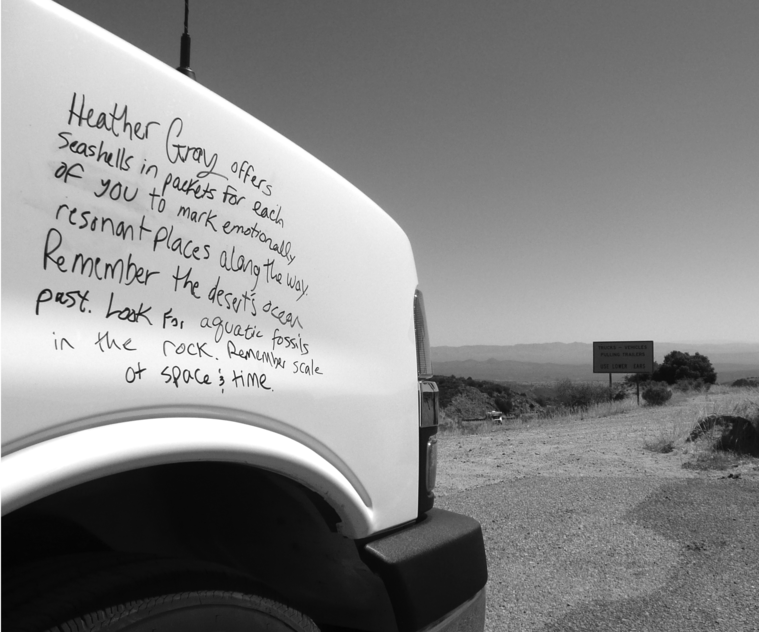 Heather Gray offers
Seashells in packets for each
of you to mark emotionally
resonant places along the way.
Remember the desert's ocean
past. Look for aquatic fossils
in the rock. Remember scale
of space & time.
TRUCKS - VEHICLES
PULLING TRAILERS
USE LOWER GEARS